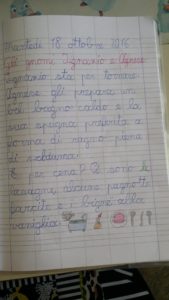 Martedì 18 ottobre 2016
gli gnomi Ignazio e Agnese
Ignazio sta per tornare
Agnese gli prepara un
bel bagno caldo e la
sua spugna preferita a
forma di ragno piena
di schiuma!
E per cena? Ci sono le
lasagne, alcune pagnotte
farcite e i bignè alla
vaniglia